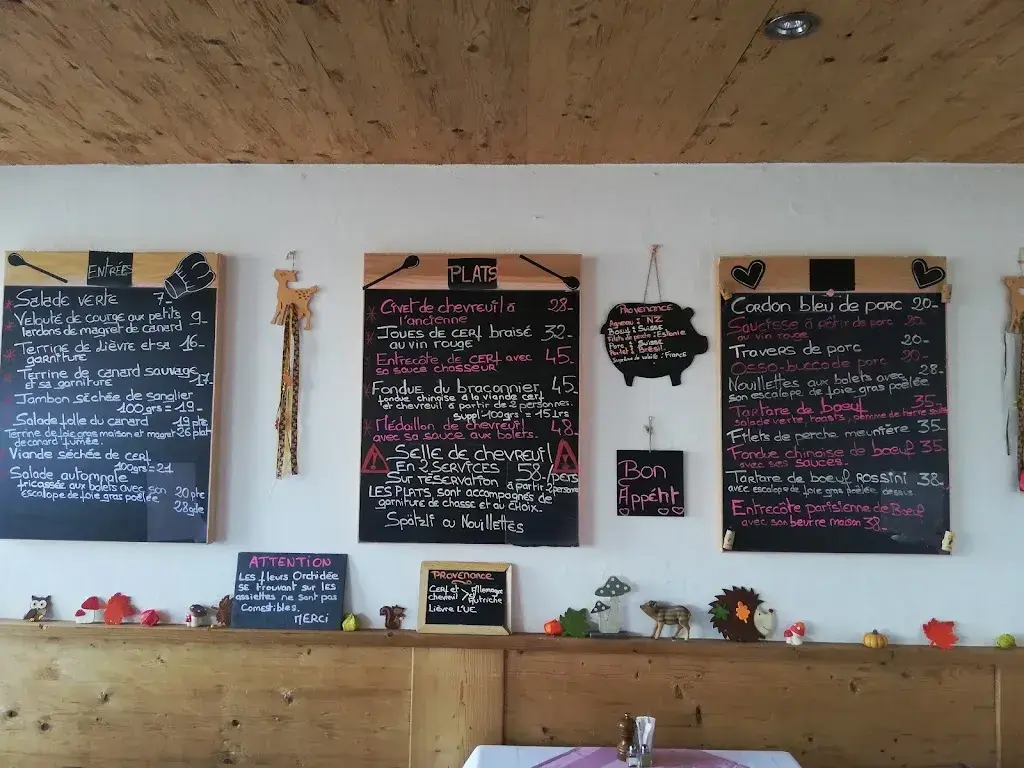 ENTRÉES
Salade verte 7-
Velouté de courge aux petits
lardons de magret de canard 9-
Terrine de Lièvre et sa 16-
garniture
Terrine de canard sauvage
et sa garniture 17-
Jambon séchée de sanglier
100grs = 19-
Salade folle du canard 19 pte
Terrine de foie gras maison et magret 26 plat
de canard fumée.
Viande séchée de cerf
100grs = 21
Salade automnale
fricassée aux bolets avec son 20 pte
escalope de foie gras poêlée 28 gde
PLATS
Civet de chevreuil à 28-
l'ancienne
Joues de cerf braisé 32-
au vin rouge
Entrecôte de cerf avec 45-
sa sauce chasseur
Fondue du braconnier 45-
fondue chinoise à la viande cerf
et chevreuil à partir de 2 personnes.
suppl-100grs = 15 frs
Médaillon de chevreuil 48-
avec sa sauce aux bolets.
Selle de chevreuil
En 2 services 58-/pers
Sur réservation à partir 2 personnes
Les plats sont accompagnés de
garniture de chasse et au choix.
Spätzli ou Nouillettes
Provenance
Agneau : NZ
Bœuf : Suisse
Filets de perche : Estonie
Porc : Suisse
Poulet : Brésil
: France
Bon
Appétit
Cordon bleu de porc 20-
Saucisse à rôtir de porc 20-
au vin rouge
Travers de porc 20-
Osso-bucco de porc 20-
Nouillettes aux bolets avec 28-
son escalope de foie gras poêlée
Tartare de bœuf 35-
salade verte, toasts,
Filets de perche meunière 35-
Fondue chinoise de bœuf 35-
avec ses sauces.
Tartare de bœuf Rossini 38-
avec escalope de foie gras poêlée dessus
Entrecôte parisienne de Bœuf
avec son beurre maison 38-
ATTENTION
Les fleurs Orchidée
se trouvant sur les
assiettes ne sont pas
Comestibles.
MERCI
PROVENANCE
Cerf et Allemagne
chevreuil > Autriche
Lièvre L'UE